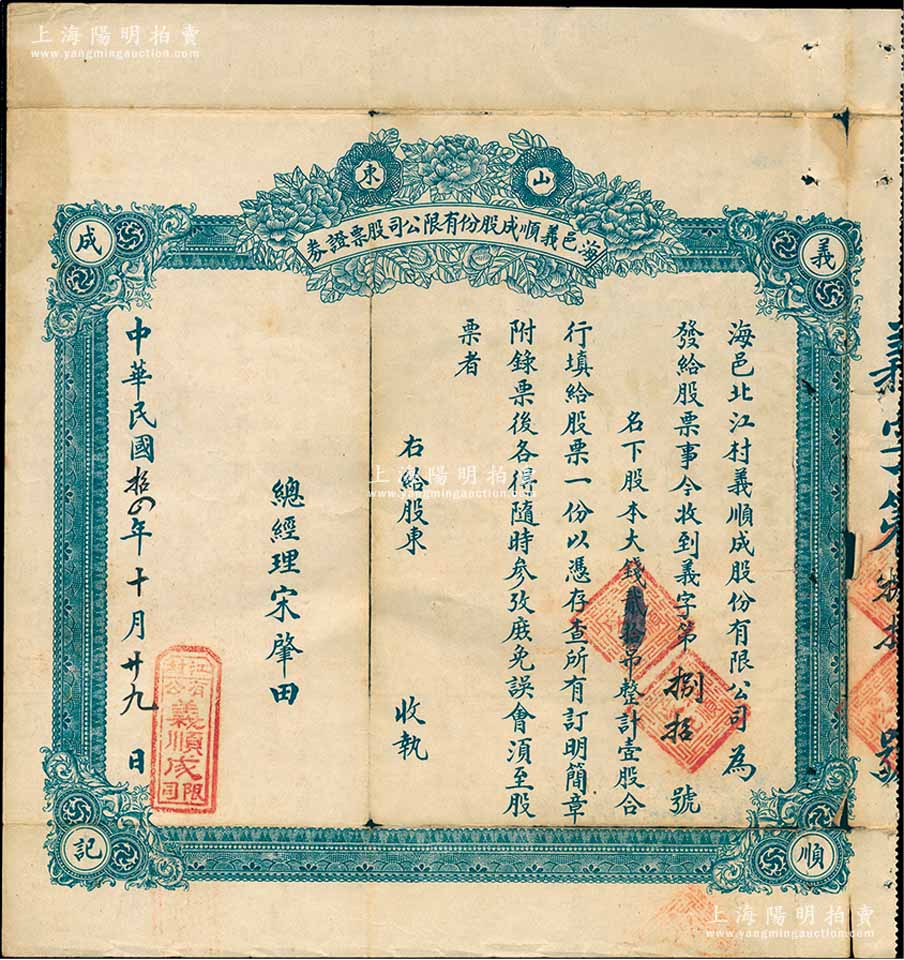 上海陽明拍賣
www.yangmingauction.com
山東
海邑義順成股份有限公司股票證券
義
成
順
記
海邑北江村義順成股份有限公司為
發給股票事今收到義字第捌拾號
名下股本大錢貳拾吊整計壹股合
行填給股票一份以憑存查所有訂明簡章
附錄票後各得隨時參攷庶免誤會須至股
票者
右給股東 收執
總經理宋肇田
中華民國拾四年十月廿九日
江村
有公
義順成
限司
義字第捌拾號
上海陽明拍賣
www.yangmingauction.com
上海陽明拍賣
www.yangmingauction.com